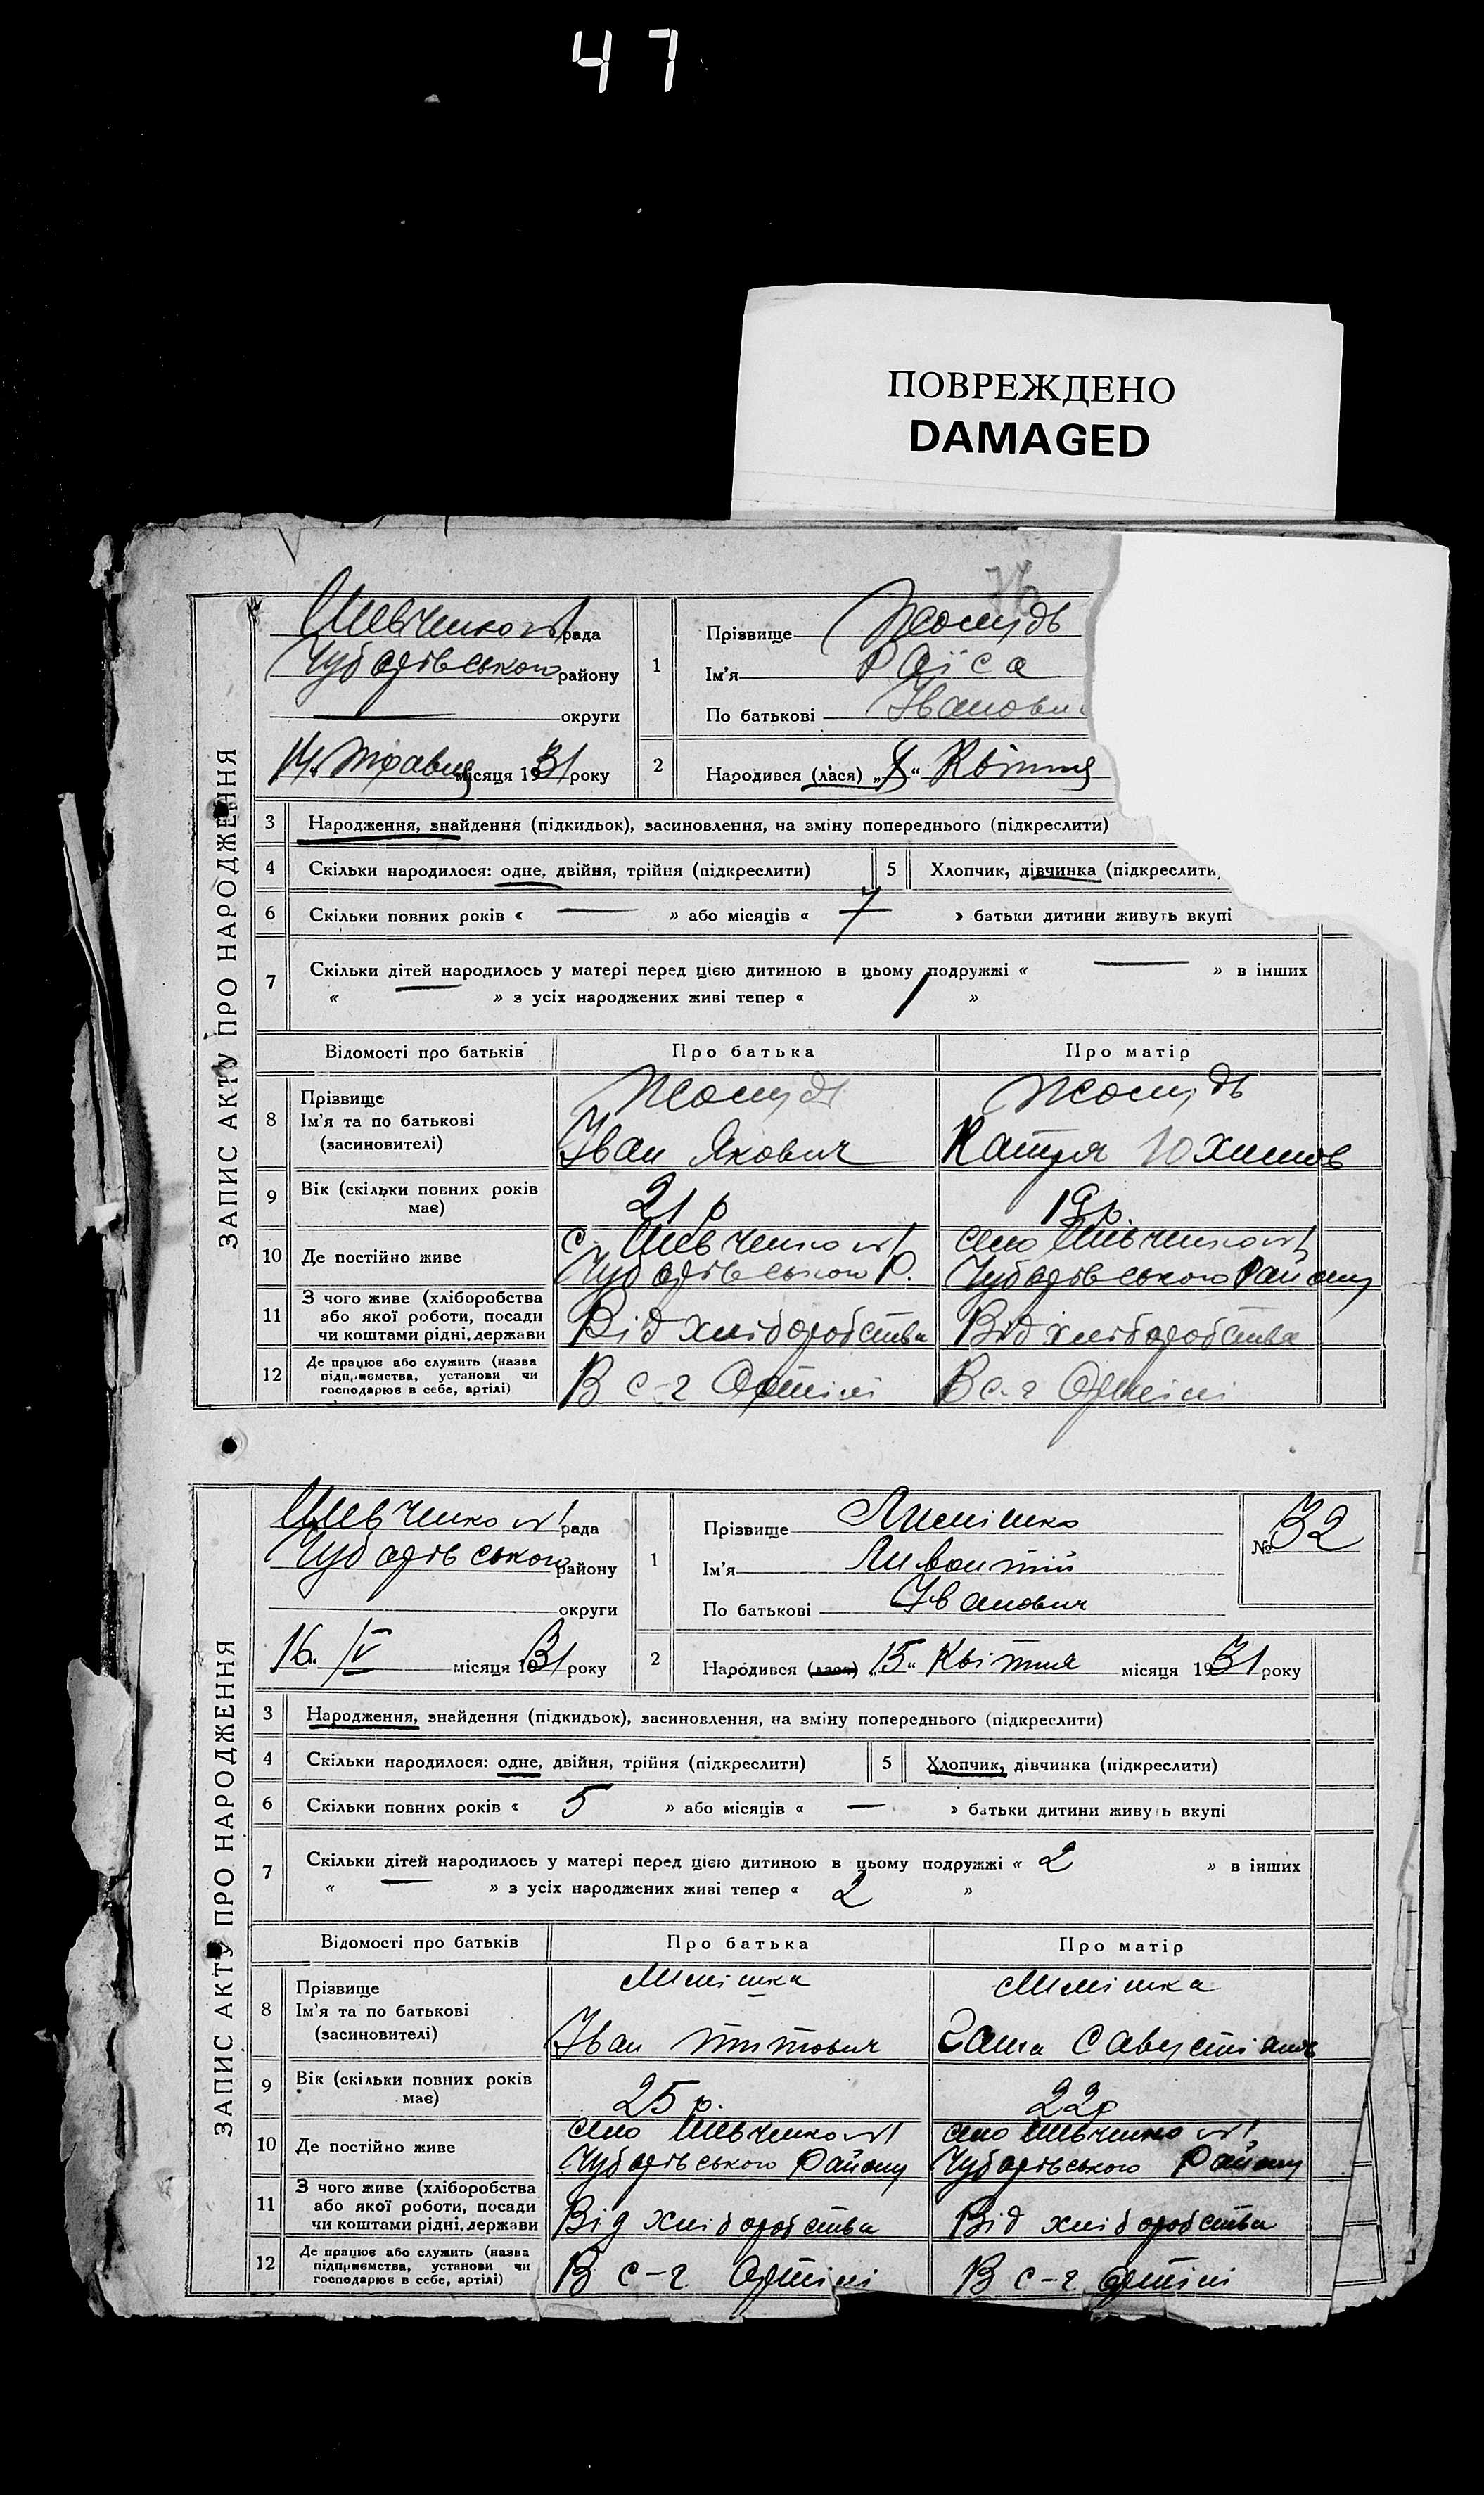 47
ПОВРЕЖДЕНО
DAMAGED
ЗАПИС АКТУ ПРО НАРОДЖЕННЯ
рада
Чубарівського району
округи
14 травня місяця 1931 року
1
Прізвище
Ім'я Раїса
По батькові
2
Народився (лася) „ “ Квітня
3 Народження, знайдення (підкидьок), засиновлення, на зміну попереднього (підкреслити)
4 Скільки народилося: одне, двійня, трійня (підкреслити) 5 Хлопчик, дівчинка (підкреслити
6 Скільки повних років « — » або місяців « » батьки дитини живуть вкупі
7 Скільки дітей народилось у матері перед цією дитиною в цьому подружжі « — » в інших
« — » з усіх народжених живі тепер « »
Відомості про батьків Про батька Про матір
8 Прізвище
Ім'я та по батькові Іван Якович Катря Юхимов
(засиновителі)
9 Вік (скільки повних років має) 21 р 19 р.
10 Де постійно живе с. село
Чубарівського Р. Чубарівського Району
11 З чого живе (хліборобства або якої роботи, посади чи коштами рідні, держави Від хліборобства Від хліборобства
12 Де працює або служить (назва підприємства, установи чи господарює в себе, артілі) В с-г Артілі В с-г Артілі
ЗАПИС АКТУ ПРО НАРОДЖЕННЯ
рада
Чубарівського району
округи
16 IV місяця 1931 року
1
Прізвище
Ім'я
По батькові Іванович
№ 32
2
Народився (лася) „15“ Квітня місяця 1931 року
3 Народження, знайдення (підкидьок), засиновлення, на зміну попереднього (підкреслити)
4 Скільки народилося: одне, двійня, трійня (підкреслити) 5 Хлопчик, дівчинка (підкреслити)
6 Скільки повних років « 5 » або місяців « — » батьки дитини живуть вкупі
7 Скільки дітей народилось у матері перед цією дитиною в цьому подружжі « 2 » в інших
« — » з усіх народжених живі тепер « 2 »
Відомості про батьків Про батька Про матір
8 Прізвище
Ім'я та по батькові Іван Титович
(засиновителі)
9 Вік (скільки повних років має) 25 р. 22 р
10 Де постійно живе село село
Чубарівського Району Чубарівського Району
11 З чого живе (хліборобства або якої роботи, посади чи коштами рідні, держави Від хліборобства Від хліборобства
12 Де працює або служить (назва підприємства, установи чи господарює в себе, артілі) В с-г Артілі В с-г артілі